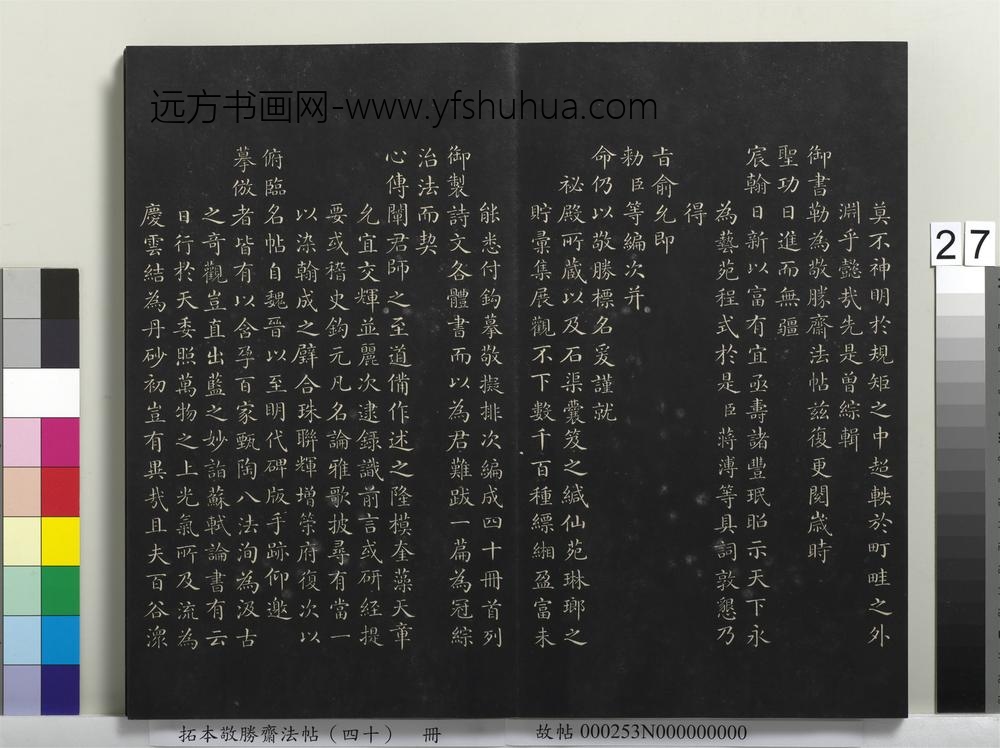 远方书画网-www.yfshuhua.com
莫不神明於規矩之中超軼於町畦之外
淵乎懿㢤先是曾綜輯
御書勒為敬勝齋法帖茲復更閱歲時
聖功日進而無疆
宸翰日新以富有宜亟壽諸豐珉昭示天下永
為藝苑程式於是臣蔣溥等具詞敦懇乃
得
㫖俞允即
勑臣等編次并
命仍以敬勝標名爰謹就
祕殿所藏以及石渠囊笈之緘仙苑琳瑯之
貯彙集展觀不下數千百種縹緗盈富未
能悉付鈎摹敬擬排次編成四十冊首列
御製詩文各體書而以為君難跋一篇為冠綜
治法而契
心傳闡君師之至道備作述之隆模奎藻天章
允宜交輝並麗次逮錄識前言或研經提
要或稽史鈎元凡名論雅歌披尋有當一
以染翰成之璧合珠聯輝增榮府復次以
俯臨名帖自魏晉以至明代碑版手跡仰邀
摹倣者皆有以含孕百家甄陶八法洵為汲古
之奇觀豈直出藍之妙詣蘇軾論書有云
日行於天委照萬物之上光氣所及流為
慶雲結為丹砂初豈有異㢤且夫百谷濴
27
拓本敬勝齋法帖（四十） 冊
故帖 000253N000000000